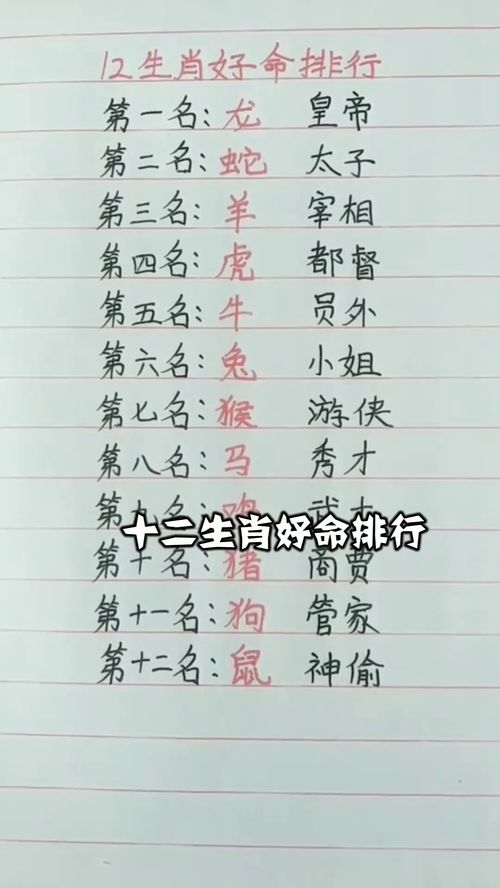 12生肖好命排行
第一名:龙 皇帝
第二名:蛇 太子
第三名:羊 宰相
第四名:虎 都督
第五名:牛 员外
第六名:兔 小姐
第七名:猴 游侠
第八名:马 秀才
第九名:鸡
十二生肖好命排行
第十名:猪 商贾
第十一名:狗 管家
第十二名:鼠 神偷